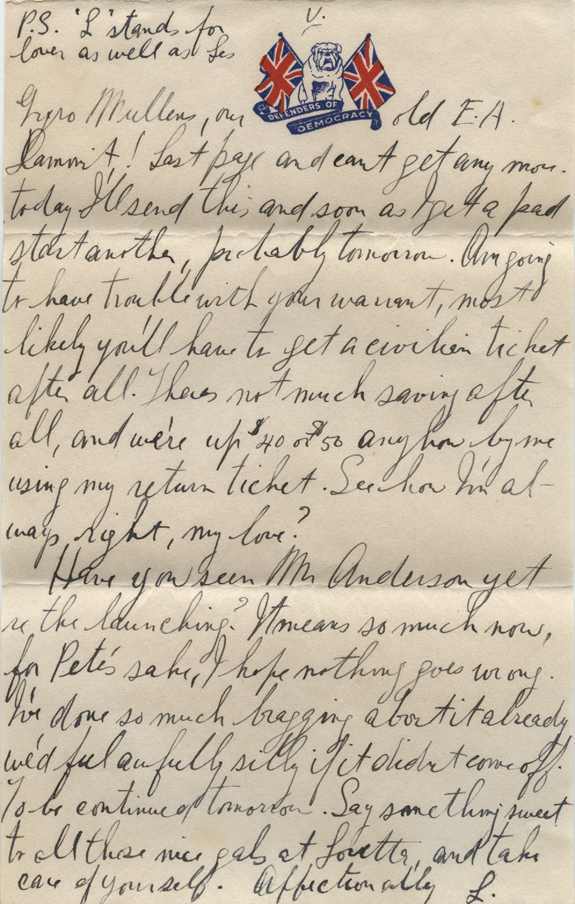 P.S. "L" stands for
lover as well as Les
V.
Gyro Mullens, our old E.A.
DEFENDERS OF
DEMOCRACY
Dammit! Last page and can't get any more
today I'll send this and soon as I get a pad
start another, probably tomorrow. Am going
to have trouble with your warrant, most
likely you'll have to get a civilian ticket
after all. Theres not much saving after
all, and we're up $40 or $50 anyhow by me
using my return ticket. See how I'm al-
ways right, my love?
Have you seen Mr Anderson yet
re the launching? It means so much now,
for Pete's sake, I hope nothing goes wrong.
I've done so much bragging about it already
we'd feel awfully silly if it didn't come off.
To be continued tomorrow. Say something sweet
to all those nice gals at Loretta, and take
care of yourself. Affectionally L.